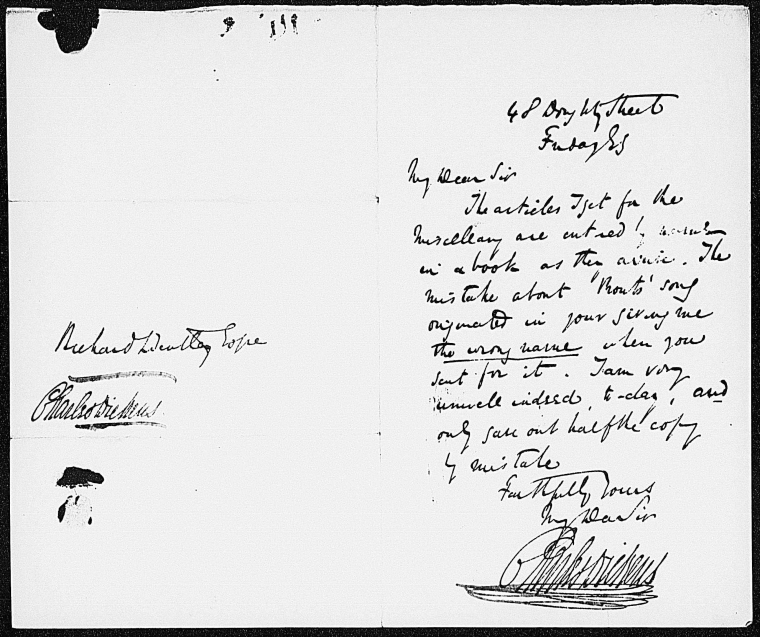 Richard Bentley Esqre
Charles Dickens
48 Doughty Street
Friday
My Dear Sir
The articles I get for the
Miscellany are entered by
in a book as they arrive. The
mistake about "Prouts' song
originated in your giving me
the wrong name when you
sent for it. I am very
unwell indeed, to-day, and
only gave out half the copy
by mistake
Faithfully Yours
My Dear Sir
Charles Dickens